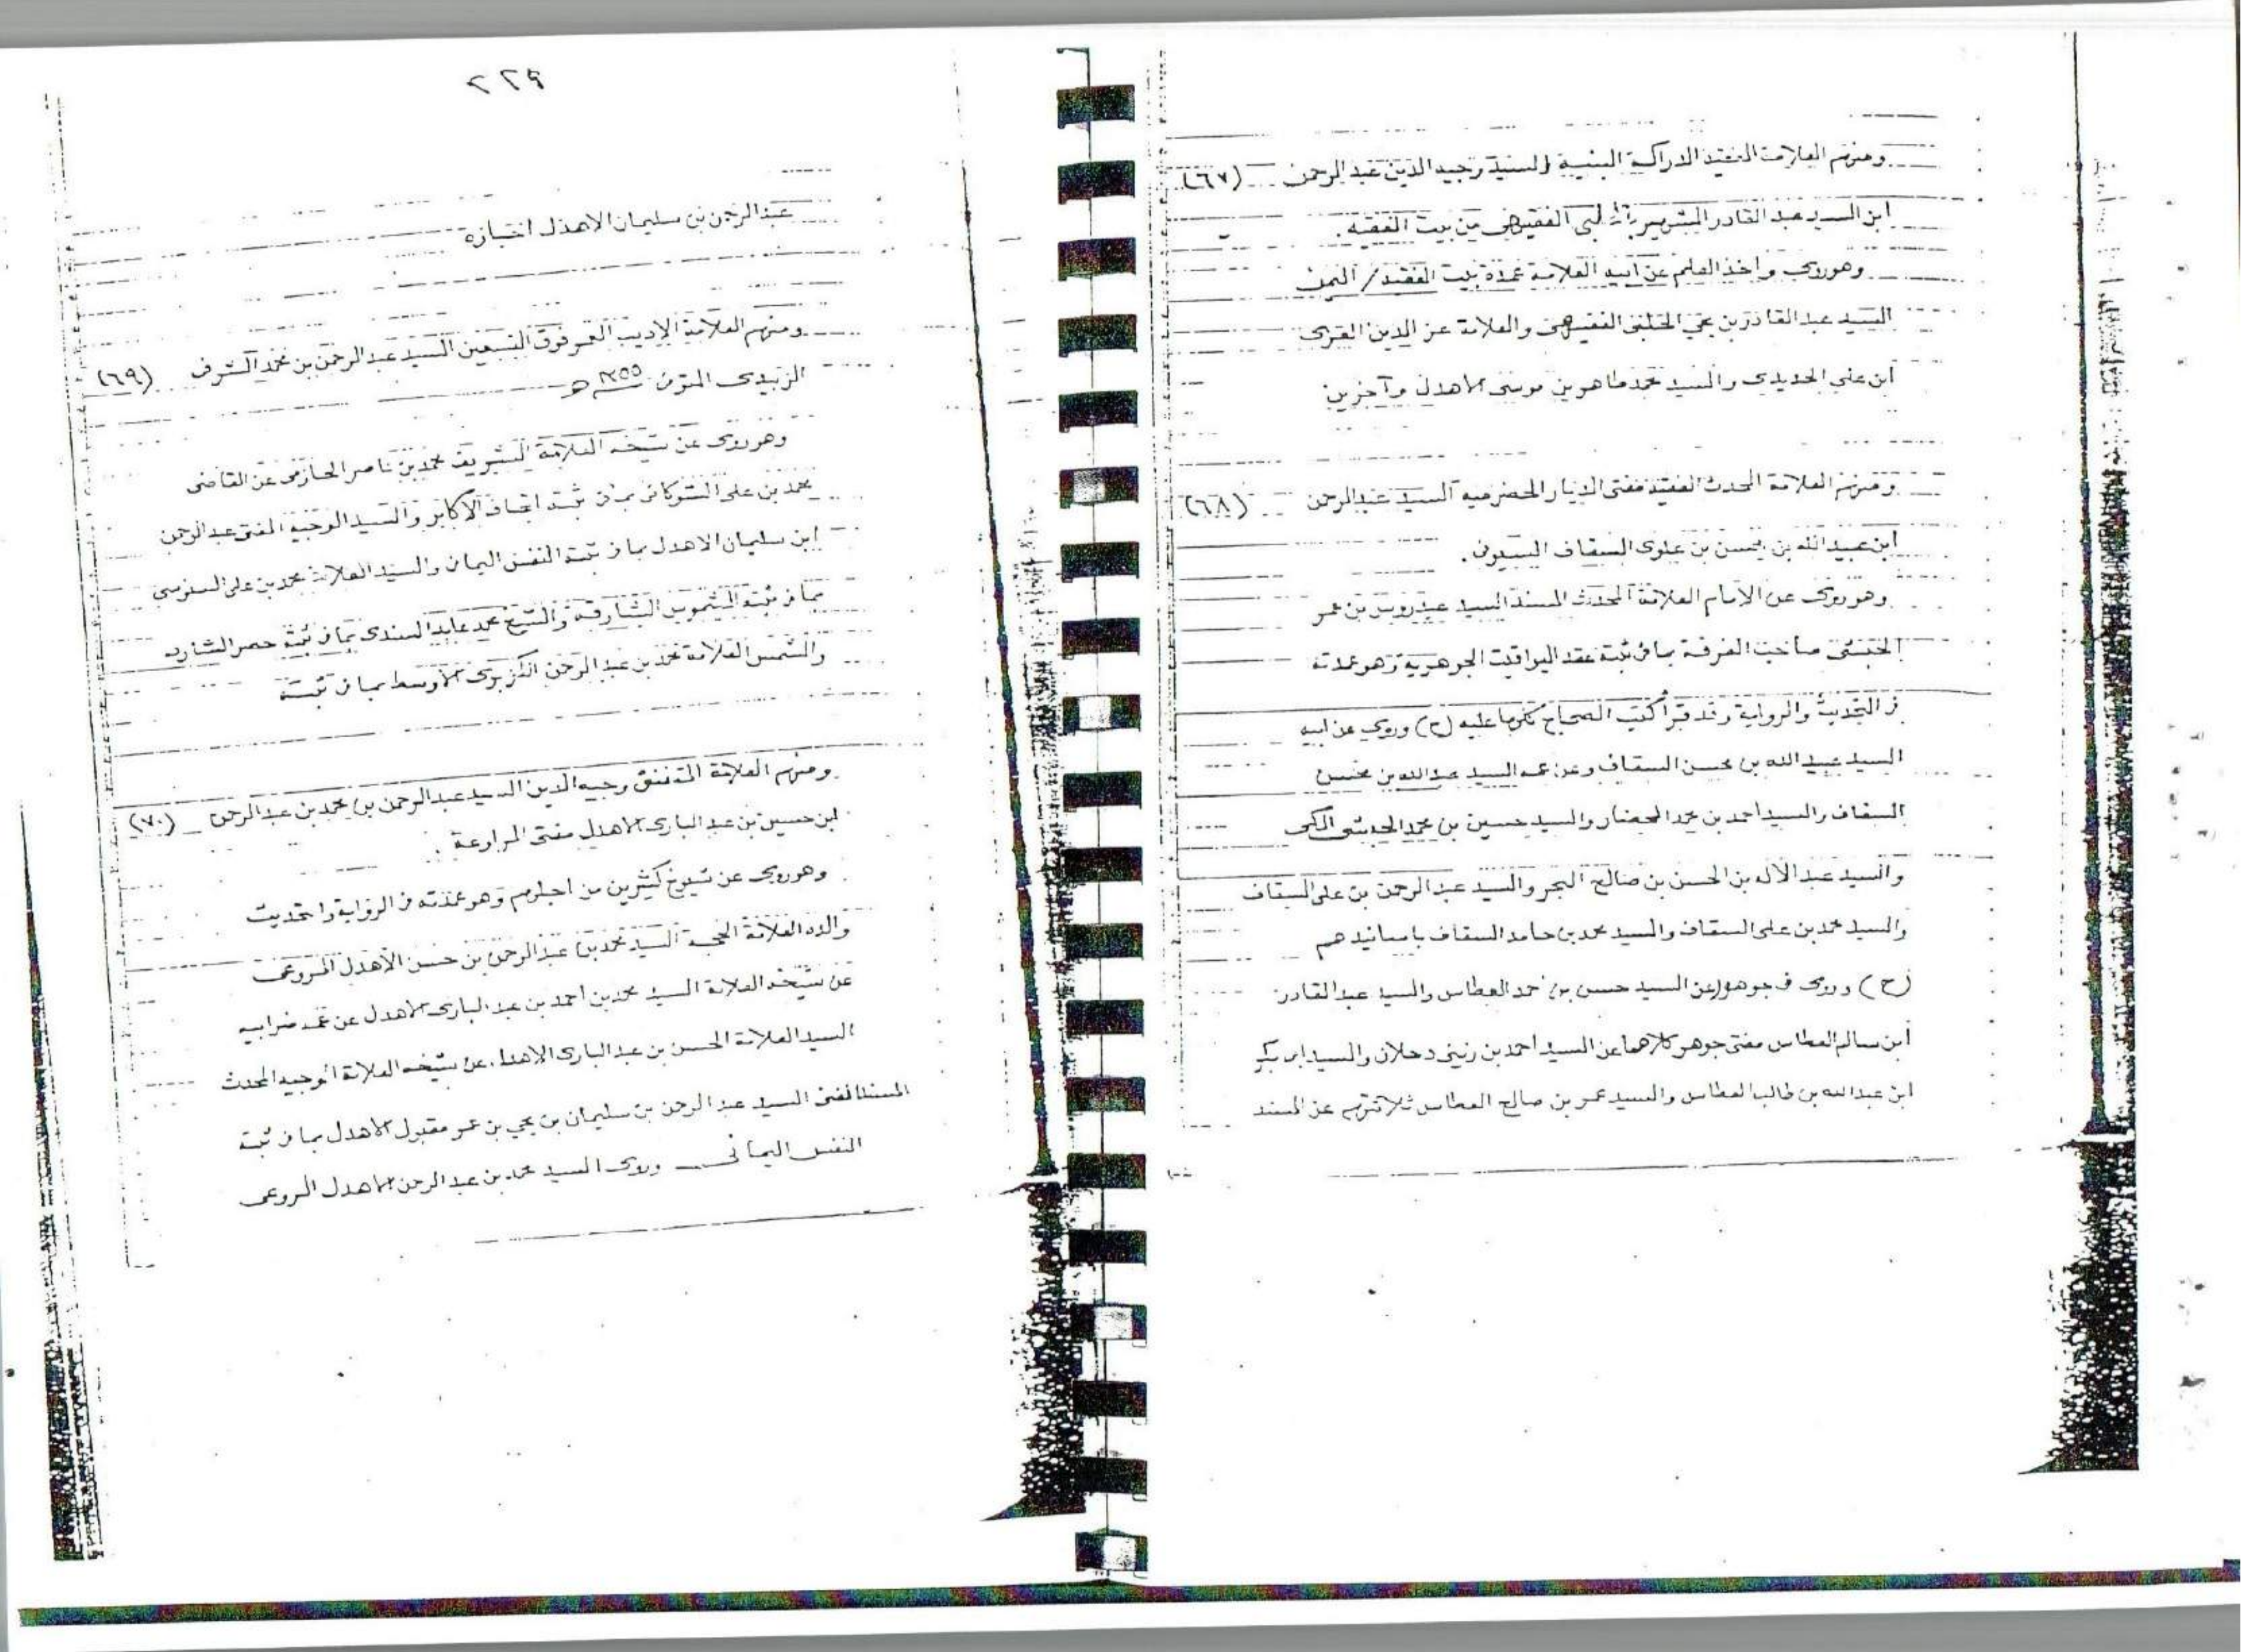 ومنهم العلامة الفقيد الدراكة البنيية السيد وجيه الدين عبد الرحمن (٦٧)
ابن السيد عبد القادر الشهير الفقيهي من بيت الفقيه .
وهو روى واخذ العلم عن ابيه العلامة عمدة بيت الفقيد / اليمن
السيد عبد القادر بن يحي الخلبي الفقيهي والعلامة عز الدين القرى
ابن علي الحديدي والسيد محمد طاهر بن موسى الاهدل وآخرين
ومنهم العلامة المحدث الفقيد مفتى الديار الحضرميه السيد عبد الرحمن (٦٨)
ابن عبيد الله بن محسن بن علوى السقاف السيونى .
وهو روى عن الامام العلامة المحدث المسند السيد عيدروس بن عمر
الحبشى صاحب الغرفة بما فى ثبته عقد اليواقيت الجوهرية وهو عمدته
فى التحديث والرواية وقد قرأ كتب الصحاح عليه (ح) وروى عن ابيه
السيد عبيد الله بن محسن السقاف وعن عمه السيد عبد الله بن محسن
السقاف والسيد احمد بن محمد المحضار والسيد حسين بن محمد الحبشى المكى
والسيد عبد الاله بن الحسن بن صالح البحر والسيد عبد الرحمن بن على السقاف
والسيد محمد بن على السقاف والسيد محمد بن حامد السقاف باسانيدهم
(ح) وروى فى جوهور عن السيد حسن بن احمد العطاس والسيد عبد القادر
ابن سالم العطاس مفتى جوهر كلاهما عن السيد احمد بن زينى دحلان والسيد ابى بكر
ابن عبد الله بن طالب العطاس والسيد عمر بن صالح العطاس ثلاثتهم عن المسند
٢٢٩
عبد الرحمن بن سليمان الاهدل اخباره
ومنهم العلامة الاديب فوق التسعين السيد عبد الرحمن بن محمد الشرف (٦٩)
الزبيدى المتوفى ١٣٥٥ هـ
وهو روى عن شيخه العلامة الشريف محمد بن ناصر الحازمى عن القاضى
محمد بن على الشوكانى بما فى ثبته اتحاف الاكابر والسيد الوجيه المفتى عبد الرحمن
ابن سليمان الاهدل بما فى ثبته النفس اليمانى والسيد العلامة محمد بن على السنوسى
بما فى ثبته الشموس الشارقة والشيخ محمد عابد السندى بما فى ثبته حصر الشارد
والشمس العلامة محمد بن عبد الرحمن الكزبرى الاوسط بما فى ثبته
ومنهم العلامة المتفنن وجيه الدين السيد عبد الرحمن بن محمد بن عبد الرحمن (٧٠)
ابن حسين بن عبد البارى الاهدل مفتى المراوعة .
وهو روى عن شيوخ كثيرين من اجلهم وهو عمدته فى الرواية والتحديث
والده العلامة الحجة السيد محمد بن عبد الرحمن بن حسن الاهدل المروعى
عن شيخه العلامة السيد محمد بن احمد بن عبد البارى الاهدل عن عمه ابيه
السيد العلامة الحسن بن عبد البارى الاهدل عن شيخه العلامة الوجيه المحدث
المسند المفتى السيد عبد الرحمن بن سليمان بن يحي بن عمر مقبول الاهدل بما فى ثبته
النفس اليمانى وروى السيد محمد بن عبد الرحمن الاهدل المروعى